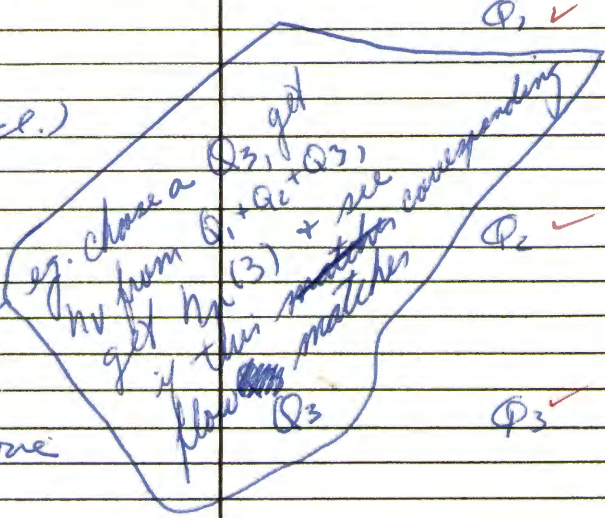 Q₁ ✓
e.)
eg. choose a Q3, get
hv from Q₁ + Q₂ + Q3,
get hn(3) + see
if this matches corresponding
flow matches
Q3
Q₂ ✓
Q3 ✓